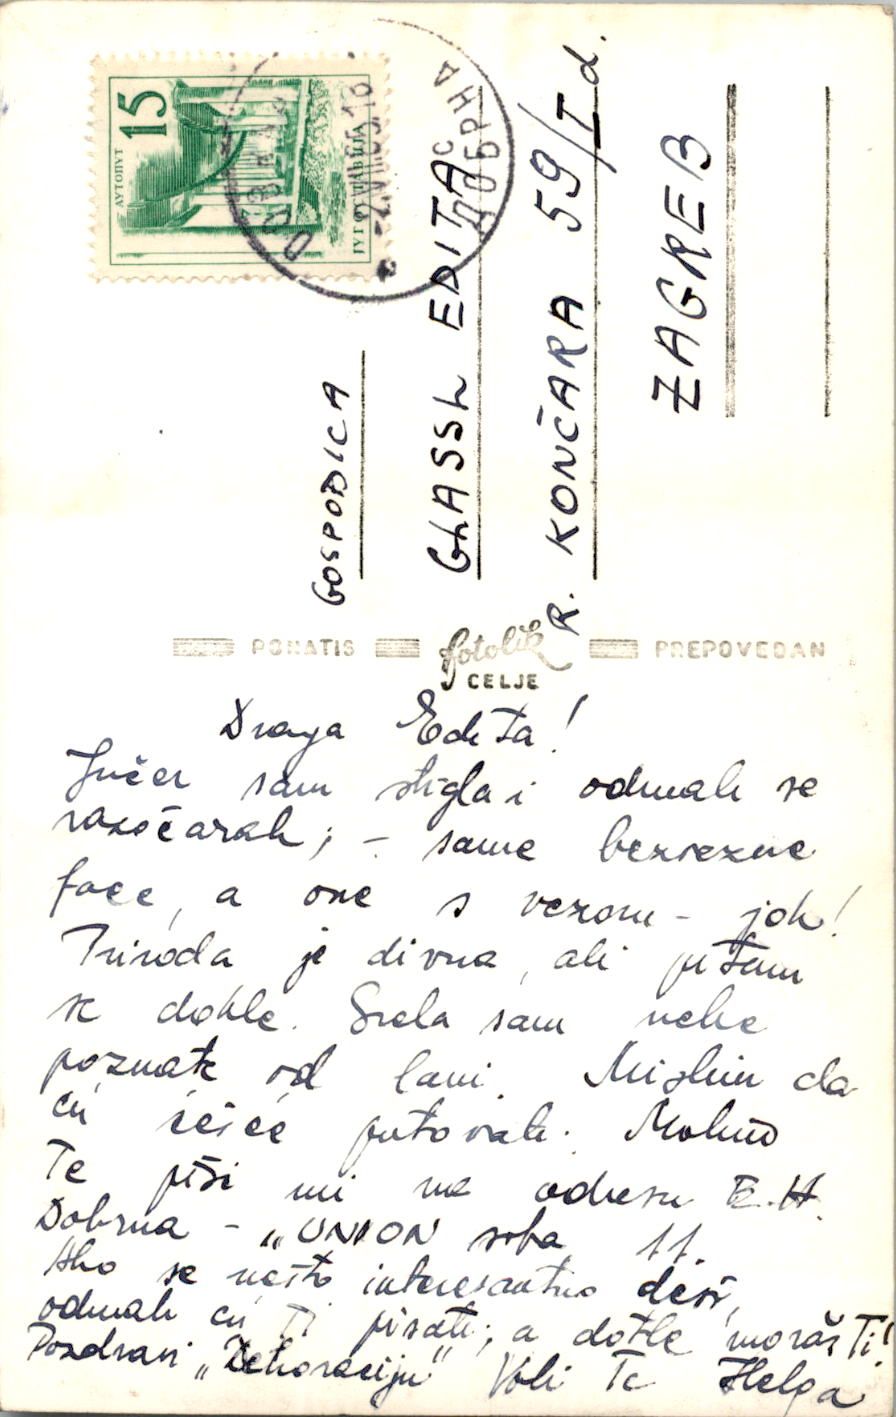 15
АУТОПУТ
ЈУГОСЛАВИЈА
ДОБРНА
GOSPOĐICA
GLASSL EDITA
R. KONČARA 59/I d.
ZAGREB
PONATIS fotolik CELJE PREPOVEDAN
Draga Edita!
Jučer sam stigla i odmah se
razočarah; – same bezvezne
face, a one s vezom – joh!
Priroda je divna, ali pitam
se dokle. Srela sam neke
poznate od lani. Mislim da
ću češće putovati. Molimo
Te piši mi na adresu E.H.
Dobrna – „UNION" soba 11
Ako se nešto interesantno desi,
odmah ću Ti pisati; a dotle moraš Ti!
Pozdravi „Dekoraciju" Voli Te Helga